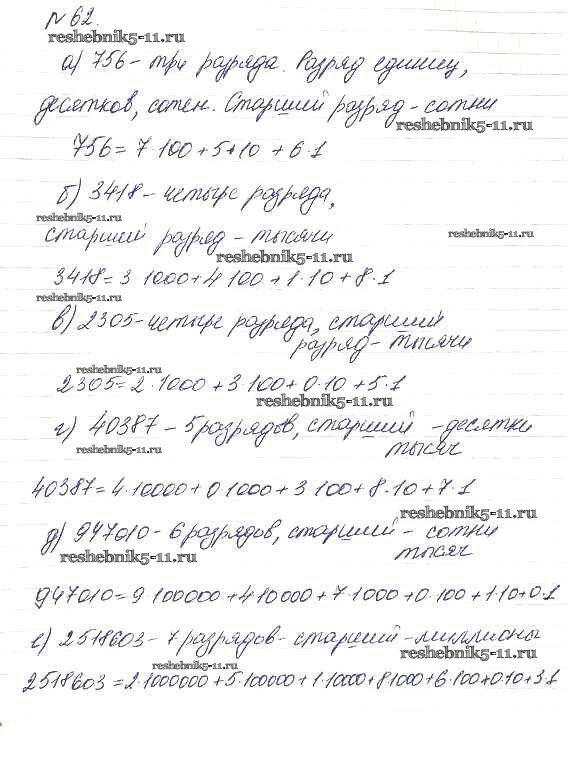 № 62.
reshebnik5-11.ru
а) 756 - три разряда. Разряд единиц,
десятков, сотен. Старший разряд - сотни
reshebnik5-11.ru
756 = 7·100 + 5·10 + 6·1
б) 3418 - четыре разряда,
reshebnik5-11.ru
старший разряд - тысячи
reshebnik5-11.ru
reshebnik5-11.ru
3418 = 3 1000 + 4 100 + 1·10 + 8·1
reshebnik5-11.ru
в) 2305 - четыре разряда, старший
разряд - тысячи
reshebnik5-11.ru
2305 = 2·1000 + 3·100 + 0·10 + 5·1
reshebnik5-11.ru
г) 40387 - 5 разрядов, старший - десятки
тысяч
reshebnik5-11.ru
40387 = 4·10000 + 0·1000 + 3·100 + 8·10 + 7·1
reshebnik5-11.ru
д) 947010 - 6 разрядов, старший - сотни
тысяч
reshebnik5-11.ru
947010 = 9 100000 + 4·10000 + 7·1000 + 0·100 + 1·10 + 0·1
е) 2518603 - 7 разрядов - старший - миллионы
reshebnik5-11.ru
reshebnik5-11.ru
2518603 = 2·1000000 + 5·100000 + 1·10000 + 8·1000 + 6·100 + 0·10 + 3·1